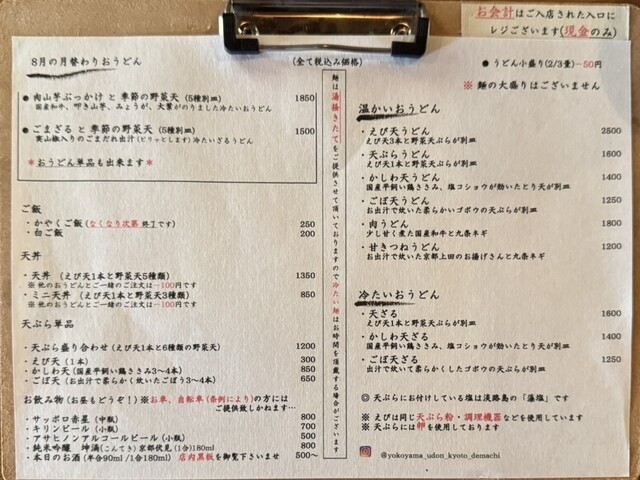 お会計はご入店された入口に
レジございます(現金のみ)
8月の月替わりおうどん
(全て税込み価格)
● 肉山芋ぶっかけ と 季節の野菜天 (5種別皿) 1850
国産和牛、叩き山芋、みょうが、大葉がのりました冷たいおうどん
● ごまざる と 季節の野菜天 (5種別皿) 1500
実山椒入りのごまだれ出汁(ピリッとします)冷たいざるうどん
*おうどん単品も出来ます*
ご飯
・かやくご飯(なくなり次第 終了です) 250
・白ご飯 200
天丼
・天丼 (えび天1本と野菜天5種類) 1350
※ 他のおうどんとご一緒のご注文は−100円です
・ミニ天丼 (えび天1本と野菜天3種類) 850
※ 他のおうどんとご一緒のご注文は−100円です
天ぷら単品
・天ぷら盛り合わせ (えび天1本と6種類の野菜天) 1200
・えび天 (1本) 300
・かしわ天 (国産平飼い鶏ささみ3〜4本) 850
・ごぼ天 (お出汁で柔らかく炊いたごぼう3〜4本) 650
お飲み物 (お昼もどうぞ!) ※お車、自転車(条例により)の方には
ご提供致しかねます…
・サッポロ赤星 (中瓶) 800
・キリンビール (小瓶) 700
・アサヒノンアルコールビール (小瓶) 500
・純米吟醸 坤滴(こんてき) 京都伏見 (1合)180ml 800
・本日のお酒 (半合90ml /1合180ml) 店内黒板を御覧下さいませ 500〜
麺は湯掻きたてをご提供させて頂いておりますので冷たい麺はお時間を頂戴する場合がございます
● うどん小盛り(2/3量)−50円
※ 麺の大盛りはございません
温かいおうどん
・えび天うどん 2500
えび天3本と野菜天ぷらが別皿
・天ぷらうどん 1600
えび天1本と野菜天ぷらが別皿
・かしわ天うどん 1400
国産平飼い鶏ささみ、塩コショウが効いたとり天が別皿
・ごぼ天うどん 1250
お出汁で炊いた柔らかいゴボウの天ぷらが別皿
・肉うどん 1800
少し甘く煮た国産和牛と九条ネギ
・甘きつねうどん 1200
お出汁で炊いた京都上田のお揚げさんと九条ネギ
冷たいおうどん
・天ざる 1600
えび天1本と野菜天ぷらが別皿
・かしわ天ざる 1400
国産平飼い鶏ささみ、塩コショウが効いたとり天が別皿
・ごぼ天ざる 1250
お出汁で炊いてやわらかくしたゴボウの天ぷらが別皿
◎ 天ぷらにお付けしている塩は淡路島の「藻塩」です
※ えびは同じ天ぷら粉・調理機器などを使用しています
※ 天ぷらには卵を使用しております
@yokoyama_udon_kyoto_demachi